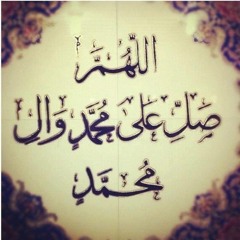 اللّٰهُمَّ
صَلِّ عَلىٰ مُحَمَّدٍ وَالِ
مُحَمَّدٍ